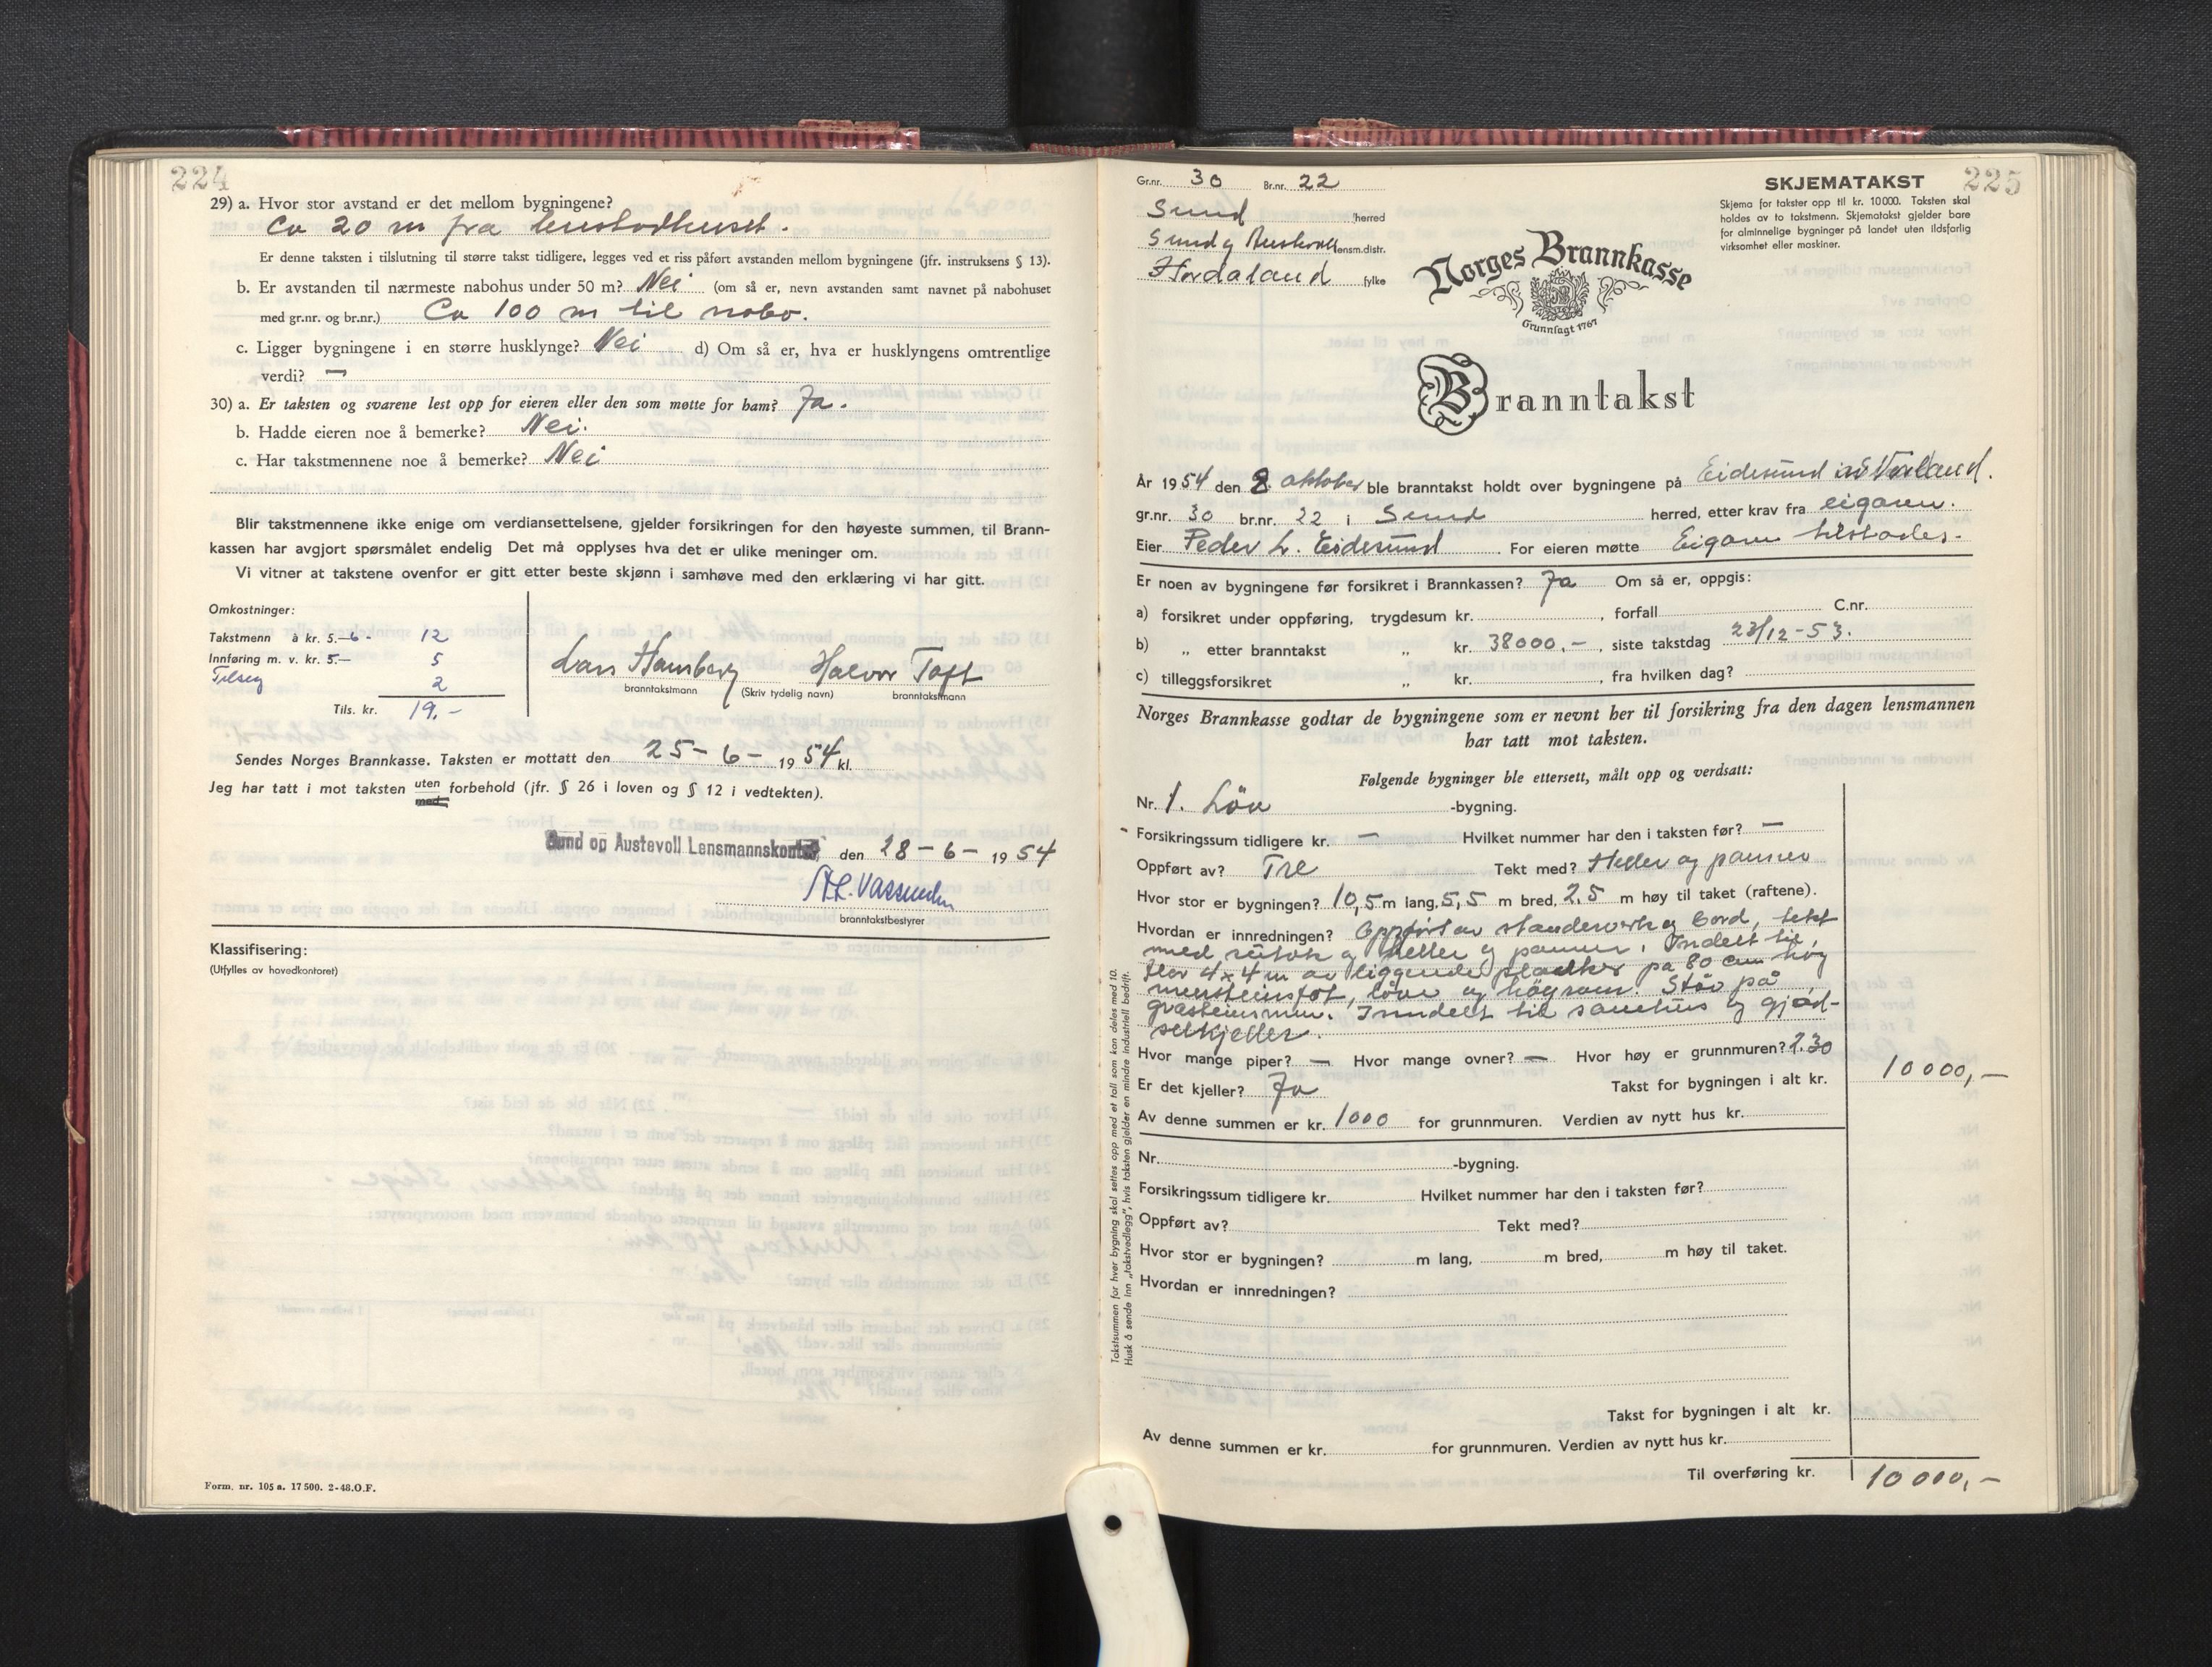 224
29) a. Hvor stor avstand er det mellom bygningene?
Ca 20 m fra
Er denne taksten i tilslutning til større takst tidligere, legges ved et riss påført avstanden mellom bygningene (jfr. instruksens § 13).
b. Er avstanden til nærmeste nabohus under 50 m? Nei (om så er, nevn avstanden samt navnet på nabohuset
med gr.nr. og br.nr.) Ca 100 m til nabo.
c. Ligger bygningene i en større husklynge? Nei d) Om så er, hva er husklyngens omtrentlige
verdi? —
30) a. Er taksten og svarene lest opp for eieren eller den som møtte for ham? Ja.
b. Hadde eieren noe å bemerke? Nei.
c. Har takstmennene noe å bemerke? Nei
Blir takstmennene ikke enige om verdiansettelsene, gjelder forsikringen for den høyeste summen, til Brann-
kassen har avgjort spørsmålet endelig Det må opplyses hva det er ulike meninger om.
Vi vitner at takstene ovenfor er gitt etter beste skjønn i samhøve med den erklæring vi har gitt.
Omkostninger:
Takstmenn à kr. 5.— 6 - 12
Innføring m. v. kr. 5.— 5
2
Tils. kr. 19.-
Lars Hamberg Halvor Toft
branntakstmann (Skriv tydelig navn) branntakstmann
Sendes Norges Brannkasse. Taksten er mottatt den 25 - 6 - 1954 kl.
Jeg har tatt i mot taksten uten med forbehold (jfr. § 26 i loven og § 12 i vedtekten).
Sund og Austevoll Lensmannskontor, den 28 - 6 - 1954
branntakstbestyrer
Klassifisering:
(Utfylles av hovedkontoret)
Form. nr. 105 a. 17 500. 2-48. O.F.
Gr.nr. 30 Br.nr. 22
Sund herred
Sund og Austevoll lensm.distr.
Hordaland fylke
SKJEMATAKST 225
Skjema for takster opp til kr. 10000. Taksten skal
holdes av to takstmenn. Skjematakst gjelder bare
for alminnelige bygninger på landet uten ildsfarlig
virksomhet eller maskiner.
Norges Brannkasse
Grunnlagt 1767
Branntakst
År 1954 den 8. oktober ble branntakst holdt over bygningene på Eidesund
gr.nr. 30 br.nr. 22 i Sund herred, etter krav fra eigaren.
Eier Peder L. Eidesund . For eieren møtte Eigaren tilstades.
Er noen av bygningene før forsikret i Brannkassen? Ja Om så er, oppgis:
a) forsikret under oppføring, trygdesum kr. , forfall C.nr.
b) „ etter branntakst „ kr. 38000.- , siste takstdag 23/12-53.
c) tilleggsforsikret „ kr. , fra hvilken dag?
Norges Brannkasse godtar de bygningene som er nevnt her til forsikring fra den dagen lensmannen
har tatt mot taksten.
Følgende bygninger ble ettersett, målt opp og verdsatt:
Nr. 1. Löe -bygning.
Forsikringssum tidligere kr. — Hvilket nummer har den i taksten før? —
Oppført av? Tre Tekt med? Heller og panner
Hvor stor er bygningen? 10,5 m lang, 5,5 m bred, 2.5 m høy til taket (raftene).
Hvordan er innredningen? Oppført av standerverk og bord, tekt
med sutak og heller og panner. Indelt til,
flor 4x4 m av liggende planker på 80 cm høg
mursteinsfot, løve og høyrom. Står på
gråsteinsmur. Inndelt til sauehus og gjöd-
selkjeller.
Hvor mange piper? — Hvor mange ovner? — Hvor høy er grunnmuren? 2.30
Er det kjeller? Ja Takst for bygningen i alt kr. 10000,-
Av denne summen er kr. 1000 for grunnmuren. Verdien av nytt hus kr.
Nr. -bygning.
Forsikringssum tidligere kr. Hvilket nummer har den i taksten før?
Oppført av? Tekt med?
Hvor stor er bygningen? m lang, m bred, m høy til taket.
Hvordan er innredningen?
Takst for bygningen i alt kr.
Av denne summen er kr. for grunnmuren. Verdien av nytt hus kr.
Til overføring kr. 10000,-
Takstsummen for hver bygning skal settes opp med et tall som kan deles med 10.
Husk å sende inn „takstvedlegg", hvis taksten gjelder en mindre industriell bedrift.